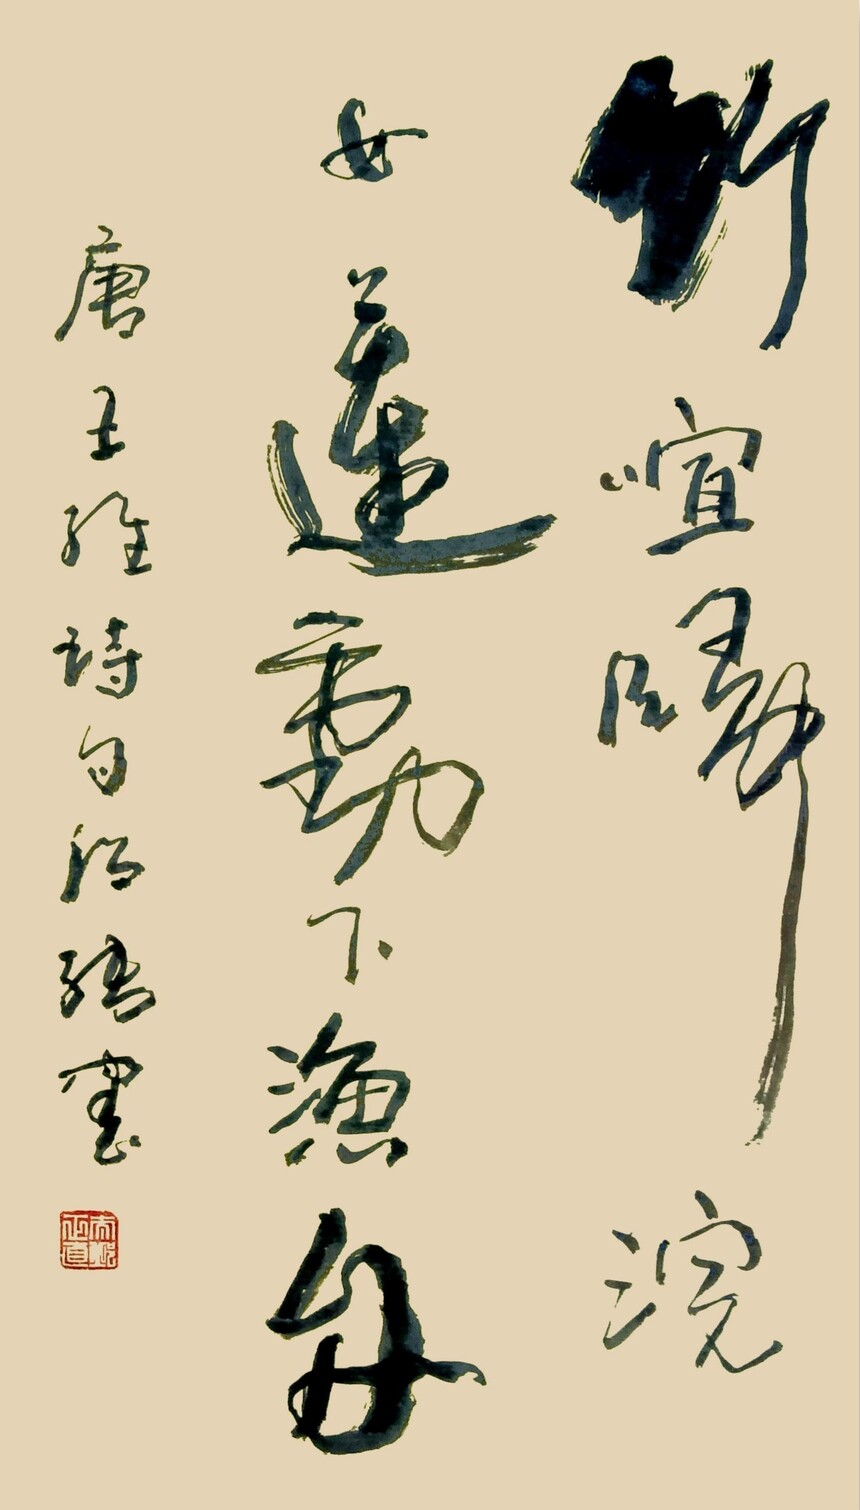 竹喧歸浣
女蓮動下漁舟
唐王維詩句